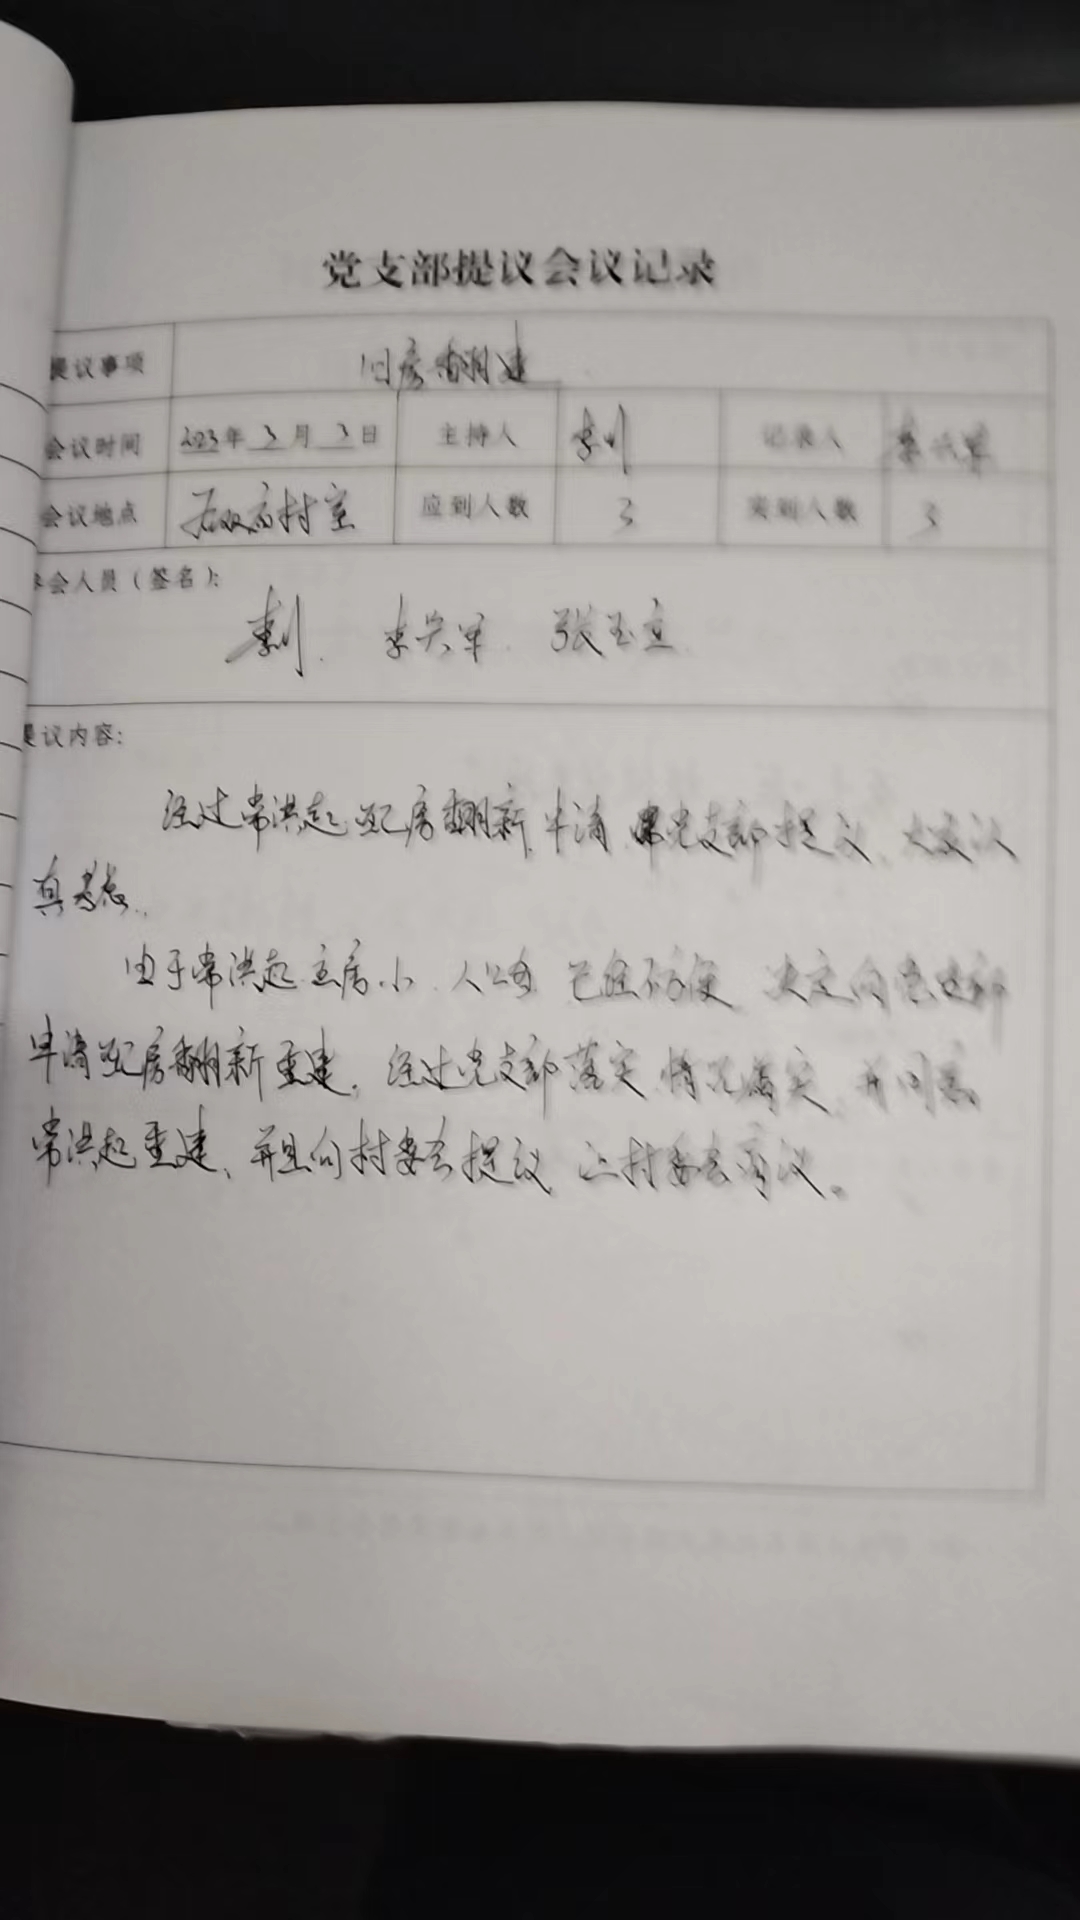 党支部提议会议记录
提议事项 旧房翻建
会议时间 2023年3月3日 主持人 李川 记录人 李兴军
会议地点 后双高村室 应到人数 3 实到人数 3
参会人员(签名):
李川 李兴军 张玉立
提议内容:
经过常洪起配房翻新申请 党支部提议, 大家认
真考虑.
由于常洪起主房小 人口多 已经不方便 决定向党支部
申请配房翻新重建, 经过党支部落实 情况属实, 并同意
常洪起重建, 并且向村委会提议 让村委会商议。